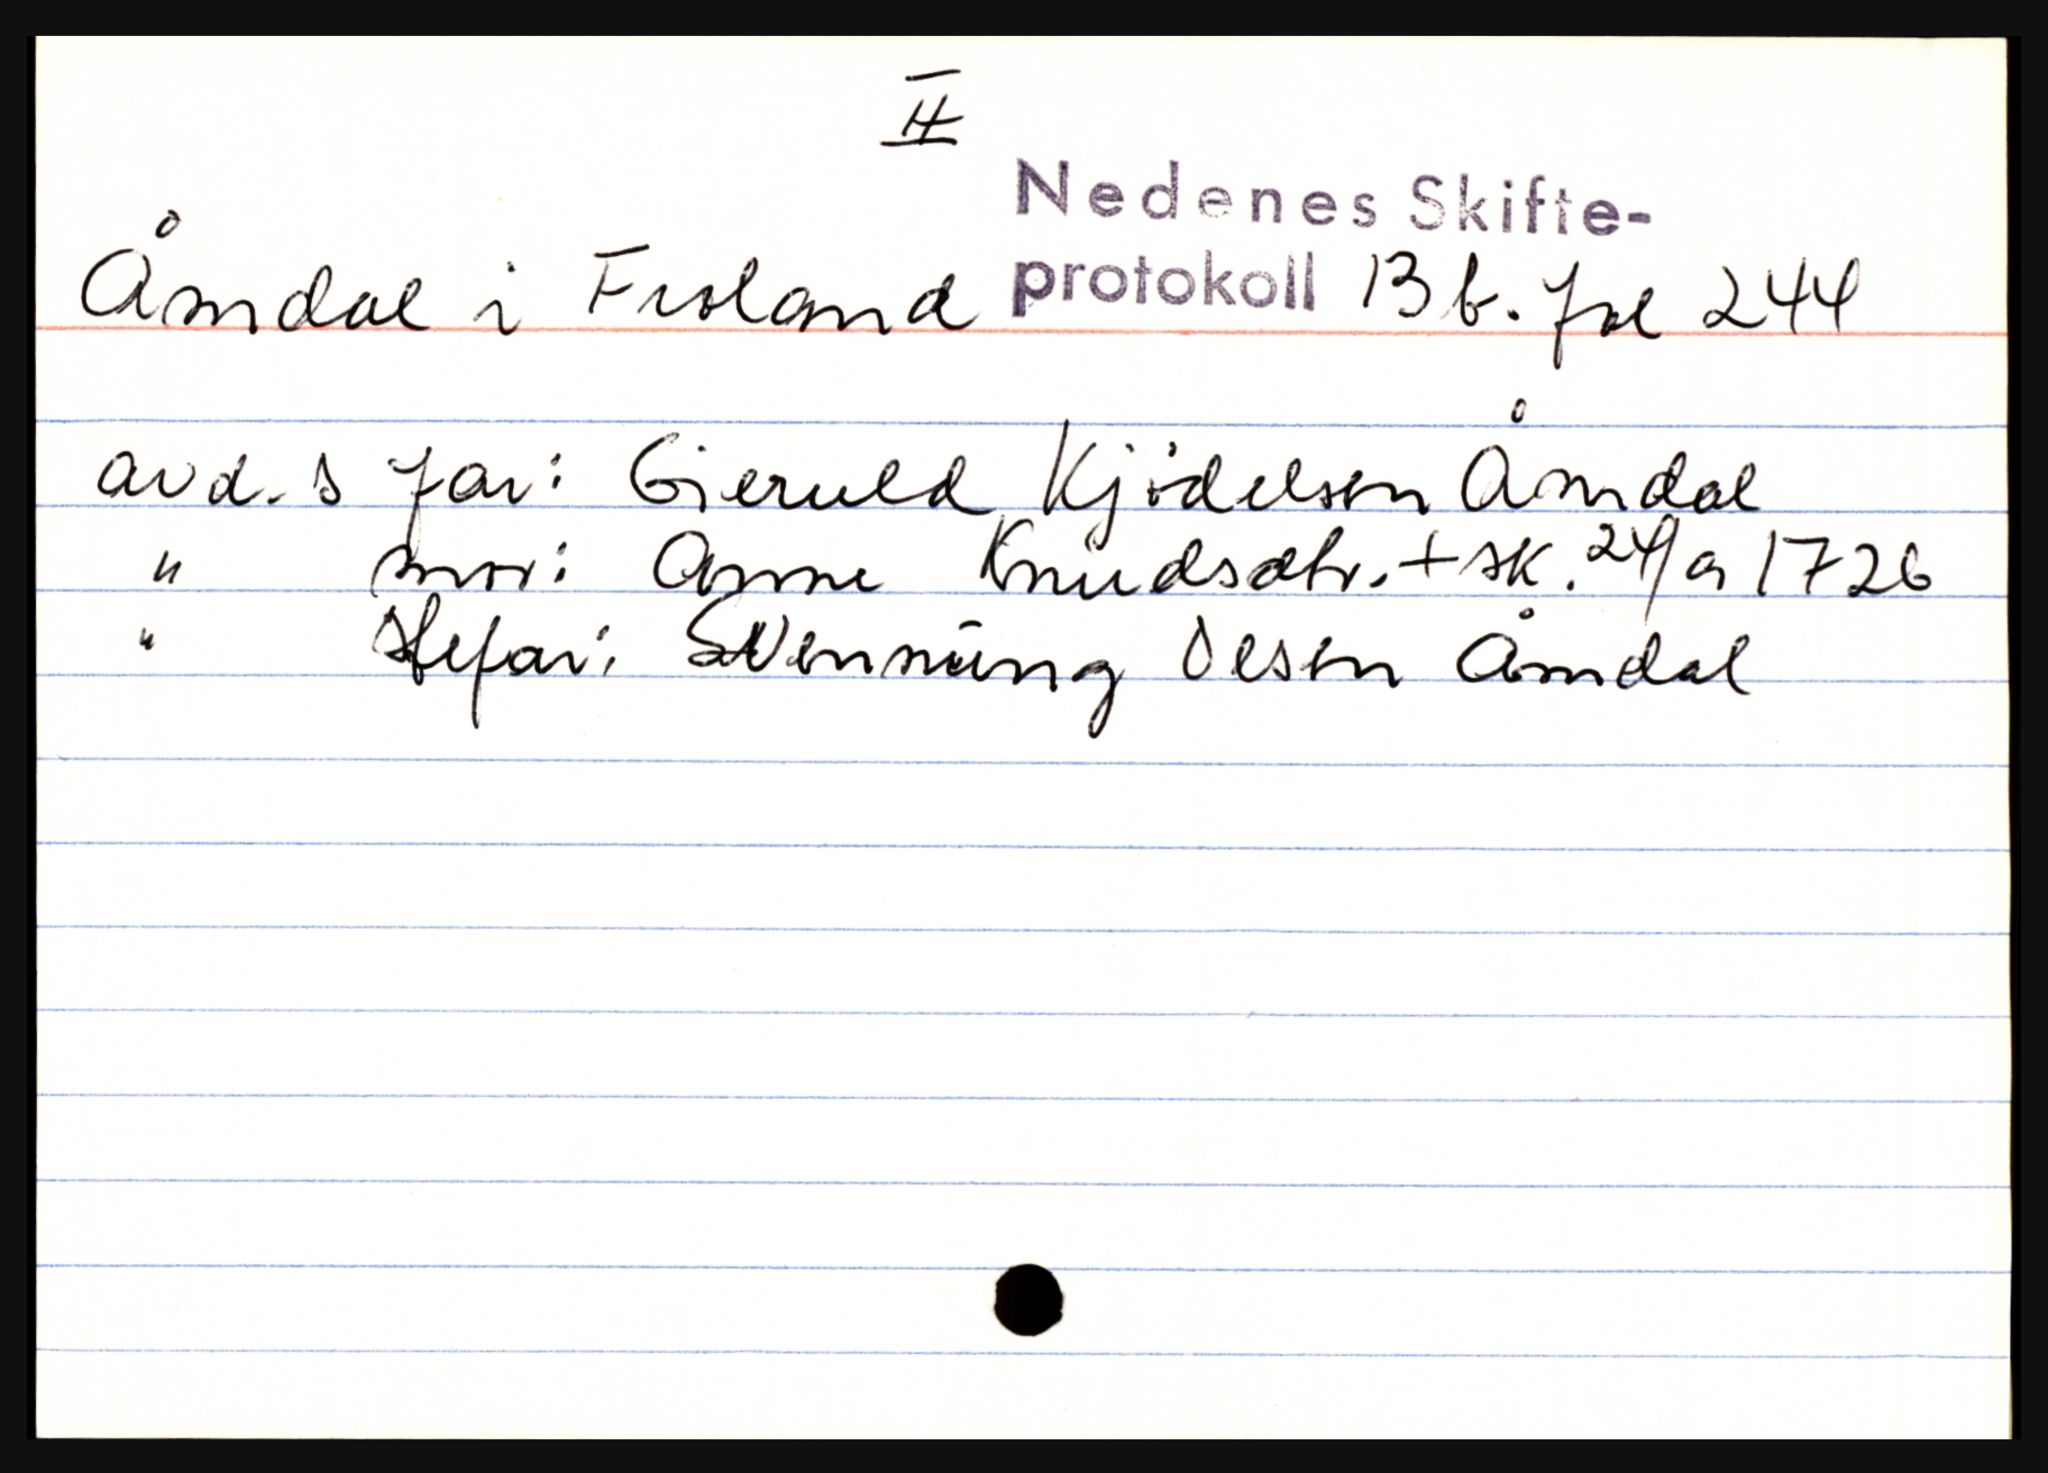 II
Nedenes Skifte-
Åmdal i Froland protokoll 13 b. fol 244
avd. s far: Gieruld Kjødelsen Åmdal
" mor: Anne Knudsdtr. + sk. 24/9 1726
" stefar: Svennung Olsen Åmdal